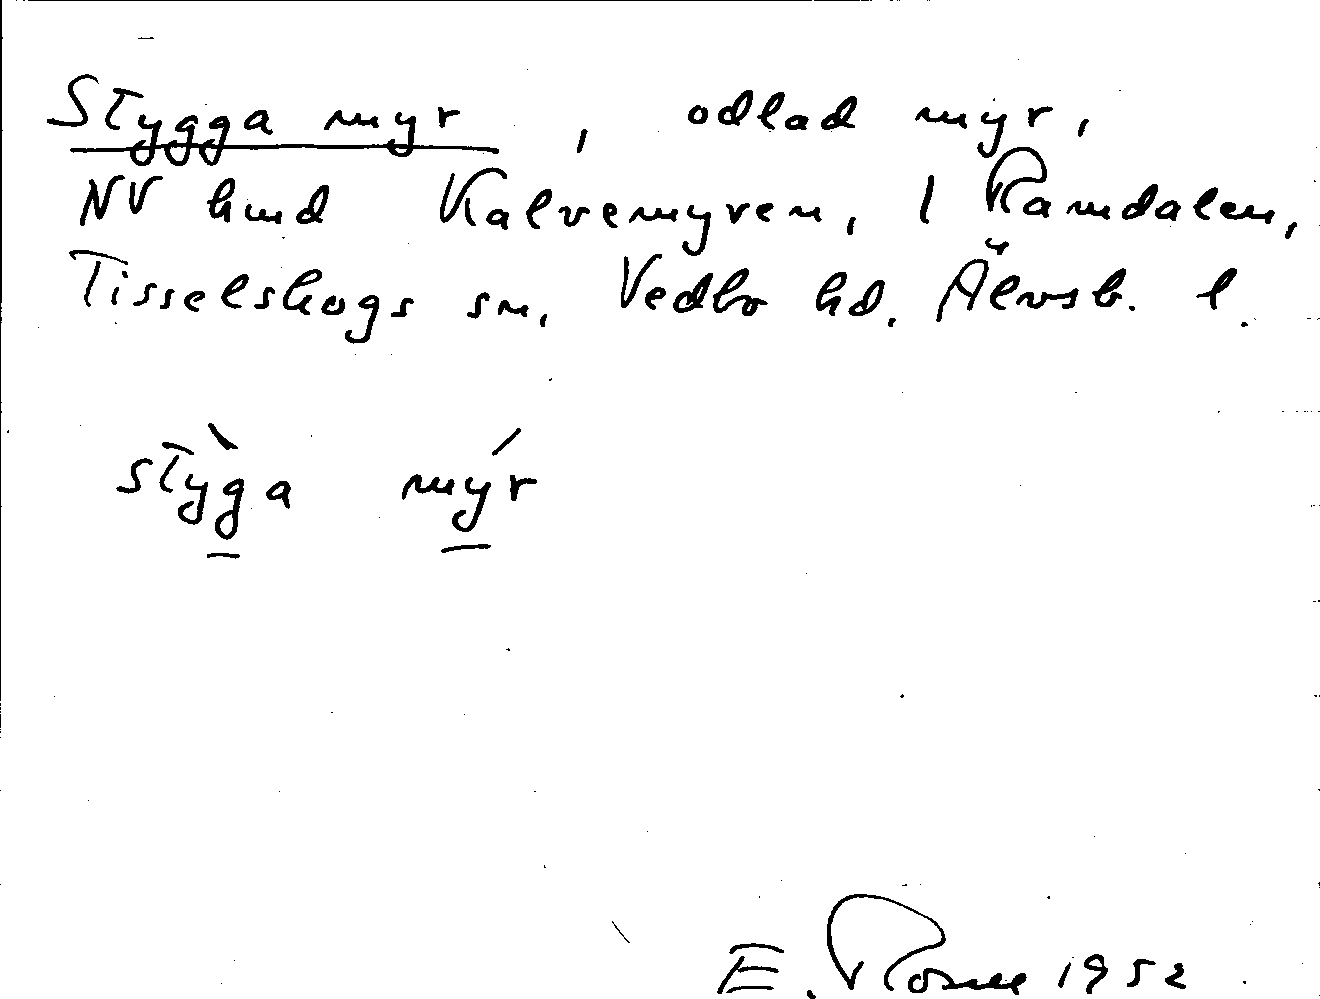 Stygga myr, odlad myr,
NV hmd Kalvemyren, i Ramdalen,
Tisselskogs sn, Vedbo hd. Älvsb. l.
stỳga mýr
E. Rosell 1952